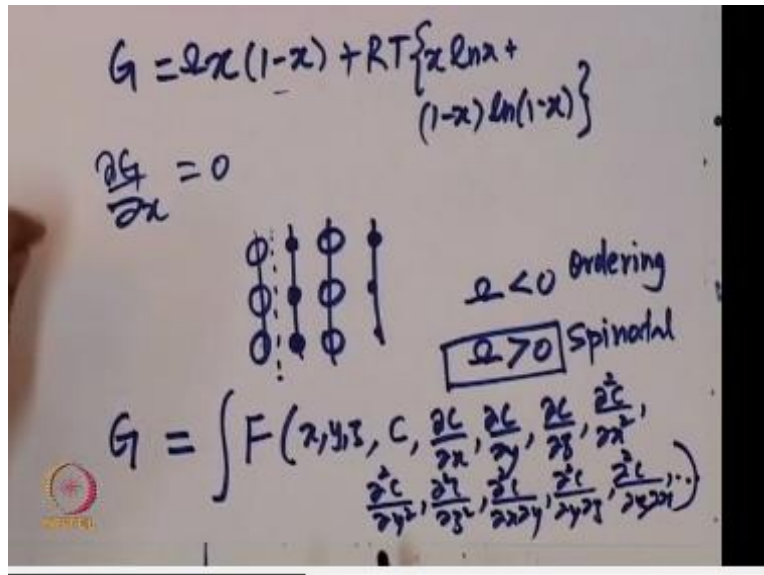 G = Ωx(1-x) + RT{x lnx +
(1-x) ln(1-x)}
∂G/∂x = 0
Ω<0 Ordering
Ω>0 Spinodal
G = ∫ F(x,y,z, C, ∂C/∂x, ∂C/∂y, ∂C/∂z, ∂²C/∂x²,
∂²C/∂y², ∂²C/∂z², ∂²C/∂x∂y, ∂²C/∂y∂z, ∂²C/∂z∂x, ..)
NPTEL